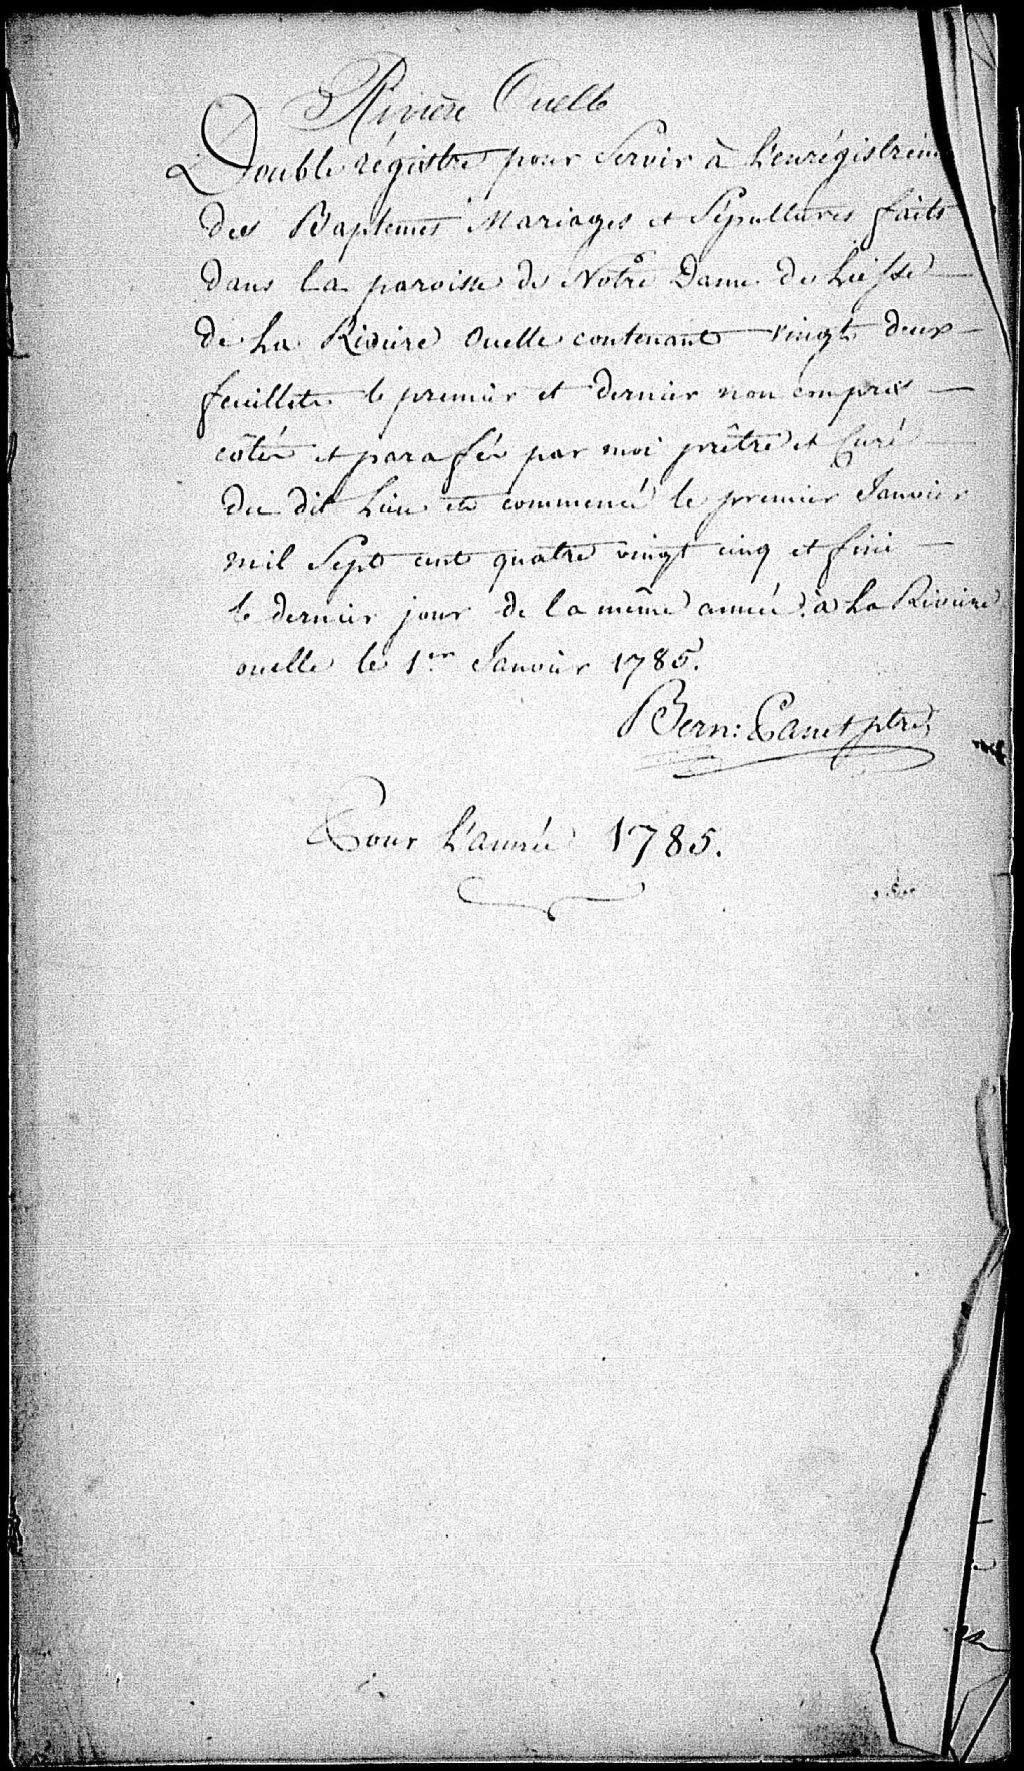 Rivière Ouelle
Double régistre pour Servir à L'enrégistrém
des Baptemes Mariages et Sépultures faits
dans la paroisse de Notre Dame de Liesse
de La Riviere Ouelle contenant vingt deux
feuillets le premier et dernier non compris
côtés et parafés par moi prêtre et Curé
du dit Lieu et commencé le premier Janvier
mil Sept cent quatre vingt cinq et fini
le dernier jour de la même année. à La Riviere
ouelle le 1er Janvier 1785.
Bern: Panet ptre
Pour L'année 1785.